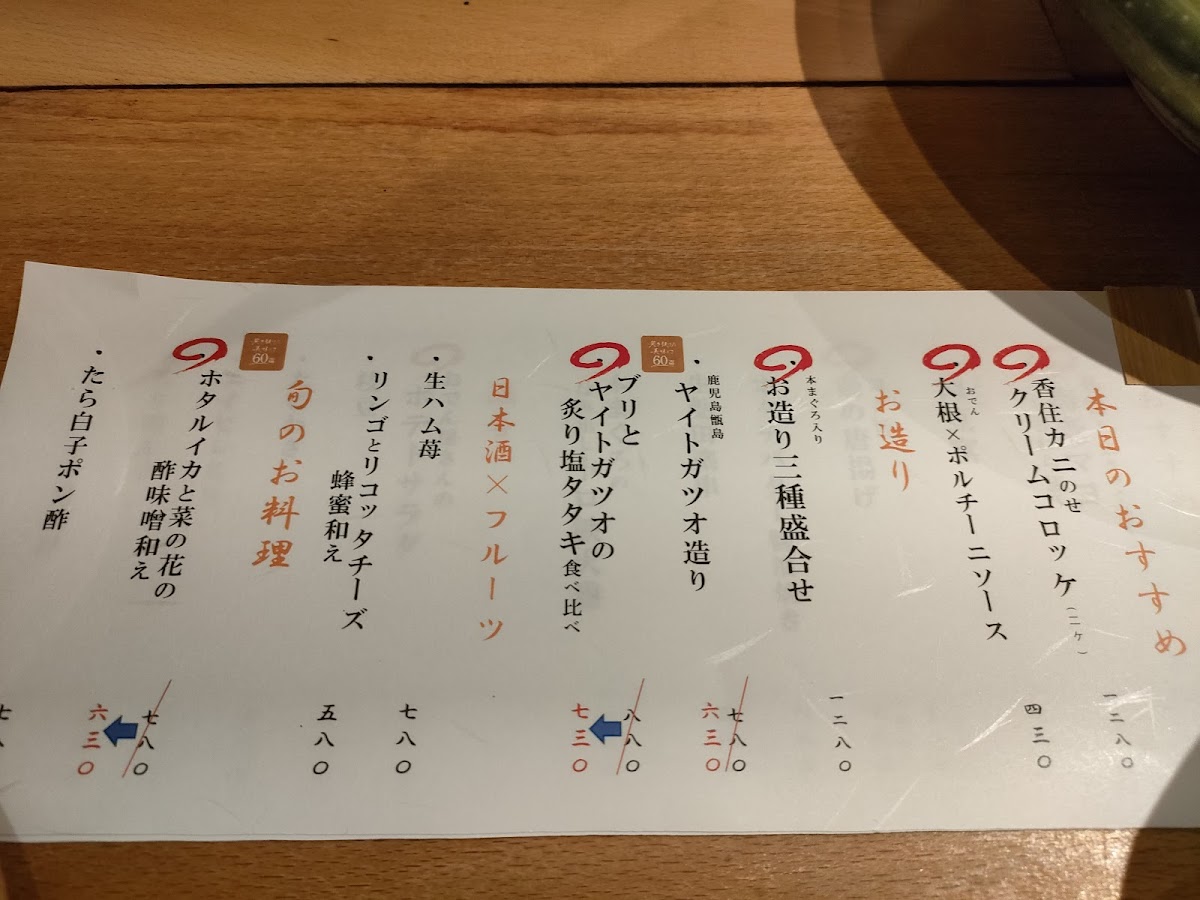 本日のおすすめ
香住カニのせ
クリームコロッケ(二ケ)
一二八〇
おでん
大根×ポルチーニソース
四三〇
お造り
本まぐろ入り
お造り三種盛合せ
一二八〇
鹿児島甑島
・ヤイトガツオ造り
七八〇
六三〇
60
ブリと
ヤイトガツオの
炙り塩タタキ食べ比べ
八八〇
七三〇
日本酒×フルーツ
・生ハム苺
七八〇
・リンゴとリコッタチーズ
蜂蜜和え
五八〇
旬のお料理
60
ホタルイカと菜の花の
酢味噌和え
七八〇
六三〇
・たら白子ポン酢
七八